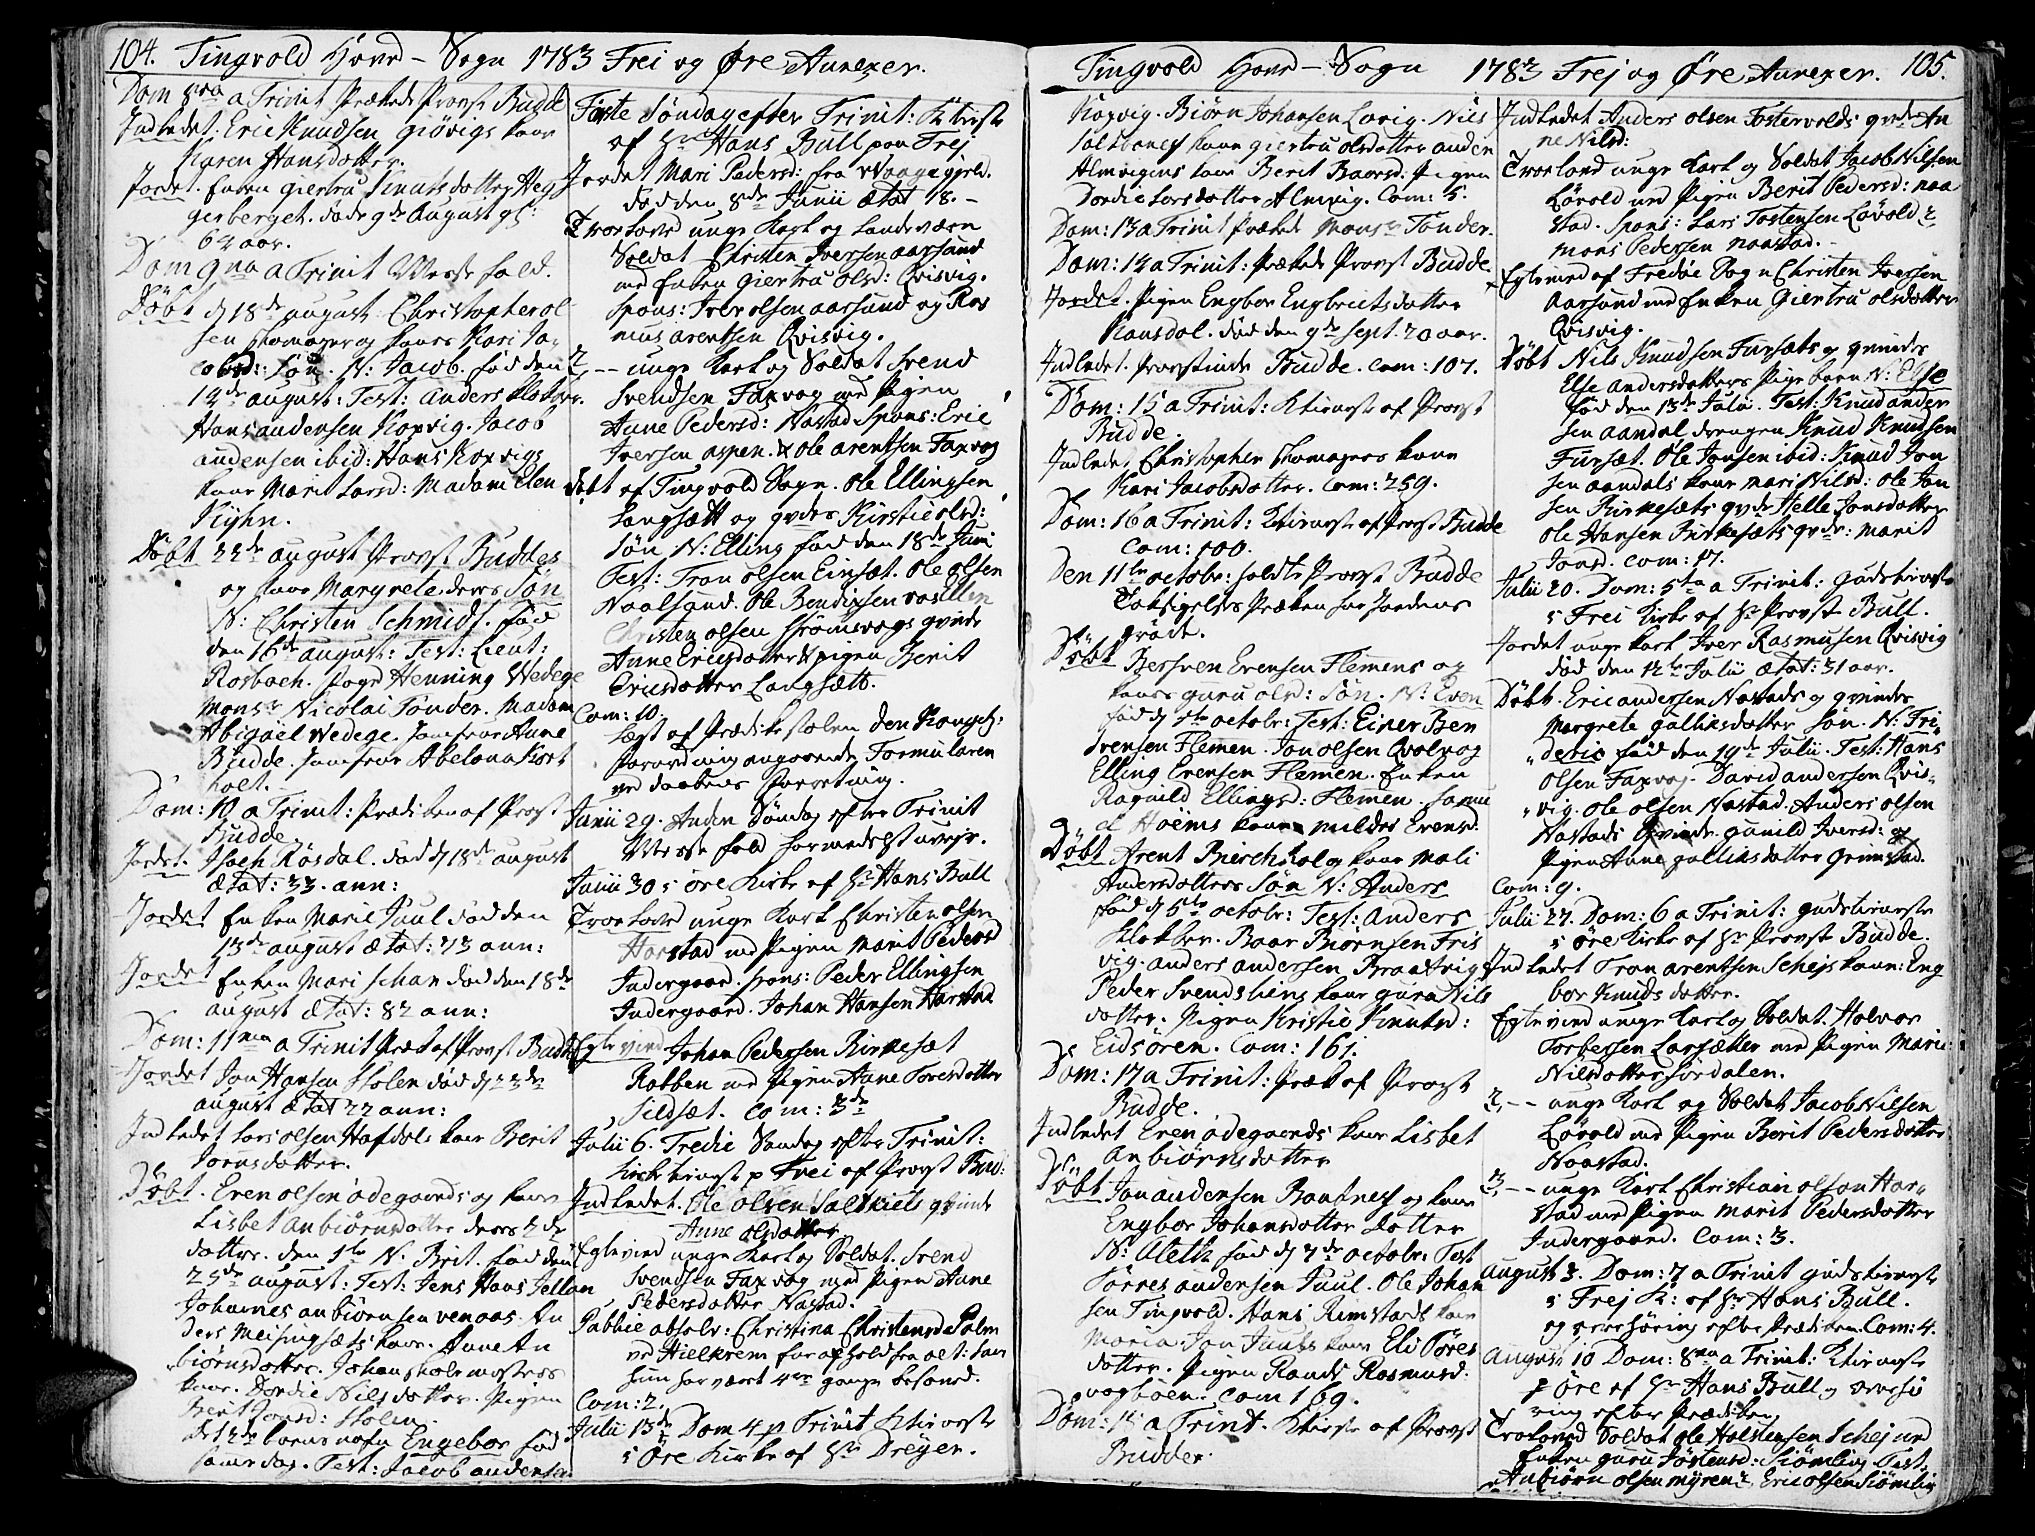 104. Tingvold Hoved-Sogn 1783 Frei og Øre Annexer.
Dom 8va a Trinit Prækede Provst Budde
Indledet: Eric Knudsen Giövigs kone
Karen Hansdotter.
Jordet. Enken Giertru Knutsdotter Heg
gerberget. døde 9de August
62 aar.
Dom 9na a Trinit Messe fald.
Döbt d 18de august Christopher ol
sen Thomager og kones Kari Ja
cobsd: Sön. N: Jacob. fød den
14de august: Test: Anders Klokker.
Hans andensen Koxvig. Jacob
andensen ibid: Hans Koxvigs
kone Marit Larsd: Madam Elen
Kyhn.
Döbt 22de august Provst Buddes
og kone Margrete deres Sön
N: Christen Schmidt. fød
den 16de august: Test: Lieut:
Rosbach. Henning Wedege
Monsr Nicolai Tønder. Madam
Abigael Wedege. Jomfrue Anne
Budde. Jomfrue Abelona Kort
holt.
Dom: 10 a Trinit: Prædiken af Provst
Budde.
Jordet. Isach Rösdal. død d 18de august
ætat: 33. ann:
Jordet Enken Marie Juul død den
13de august ætat: 73 ann:
Jordet Enken Mari Schan død den 18de
august ætat: 82 ann:
Dom: 11ma a Trinit Præk af Provst Budde
Jordet Jon Hansen Holen død d 23de
august ætat 22 ann:
Indledet Lars olsen Hafdals kone Berit
Joensdotter.
Döbt. Even olsen ödegaards og kones
Lisbet anbiörnsdotter deres 2de
døttre. den 1te N. Brit. fød den
25de august: Test: Jens Hans
Johannes anbiörnsen venaas. An
ders Meisingsæts kone. Anne An
biörnsdotter. Johan skolemesters
kone. Dordie Nilsdotter. Pigen
Berit Jonsd: Holen.
Dt 2det barns nafn Engebor fød
samedag. Test: Jacob andensen
Første Søndag efter Trinit: Kt:
af Hr Hans Bull paa Frej
Jordet Mari Pedersd: fra Waagegjerd.
død den 8de Junii ætat 18.
Trolovede unge Karl og Landeværn
Soldat Christen Iversen aarsund
med Enken Giertru olsd: Qvisvig.
Spons: Iver olsen aarsund og Ras
mus arentsen Qvisvig.
2. -- unge Karl og Soldat Svend
Svendsen Faxvog med Pigen
Anne Pedersd: Nastad Spons: Eric
Iversen aspen. & ole arentsen Faxvog
Döbt af Tingvold Sogn. Ole Ellingsen
Langsætt og qvdes Kirstie olsd:
Sön N: Elling fød den 18de Juni
Test: Tron olsen Einset. Ole olsen
Naalsund. Ole Bendixen
Christen olsen Strömsvogs qvinde
Anne Ericsdotter & pigen Berit
Ericsdotter Langsætt.
Com: 10.
Læst af Prædikestolen den Kongel:
forordning angaaende Formularen
ved daabens forretning.
Junii 29. Anden Söndag efter Trinit
Messe fald formedelst
Junii 30 i öre Kirke af Hr Hans Bull
Troelovede unge Karl Christen olsen
Harstad med Pigen Marit Pedersd
Indergaard. Spons: Peder Ellingsen
Indergaard. Johan Hansen Harstad
Egteviede Johan Pedersen Birkesæt
Robben med Pigen Anne Toresdotter
Sildsæt. Com: 3de
Julii 6. Tredie Søndag efter Trinit:
Kirketieneste p Frei af Provst Bud:
Indledet. Ole Olsen Saltkiels qvinde
Anne Olsdotter
Egteviede unge Karl og Soldat. Svend
Svendsen Faxvog med Pigen Anne
Pedersdotter Nastad.
Publice absolv: Christina Christensd: Palm
ved Hielkrem
hun har været 4re gange besovet.
Com: 2.
Julii 13de Dom 4 p Trinit
i Öre Kirke af Hr Dreyer.
Tingvold Hoved-Sogn 1783 Frej og Øre Annexer. 105.
Koxvig. Biörn Johansen Lovig. Nils
Saltbones kone Giertru olsdotter anden
Almvigens kone Berit Baarsd: Pigen
Dordie Larsdotter Almvig. Com: 5.
Dom: 13 a Trinit Prækede Monsr Tønder.
Dom: 14 a Trinit: Prækede Provst Budde.
Jordet. Pigen Engbor Engbreitsdotter
Kansdal. død den 9de Sept. 20 aar.
Indledet. Provstinde Budde. Com: 107.
Dom: 15 a Trinit: Ktieneste af Provst
Budde.
Indledet Christopher Thomagers kone
Kari Jacobsdotter. Com: 259.
Dom: 16 a Trinit: Ktieneste af Provst Budde
Com: 100.
Den 11te octobr: holdte Provst Budde
Taksigelses Præken for Jordens
gröde.
Döbt Bersven Evensen Flemens og
kones Guru olsd: Sön. N: Even
fød d octobr: Test: Einer Ber
svensen Flemen. Jon olsen Qvalvog
Elling Evensen Flemen. Enken
Ragnild Ellingsd: Flemen. Samu
el Hoems kone Mildri Evensd.
Döbt Arent Bierchhol og kone Mali
Andersdotters Sön N: Anders
fød d 5te octobr: Test: Anders
Klokker. Baar Biornsen Fris
vig. anders andersen Braatvigs
Peder Svendsliens kone Gura Nils
dotter. Pigen Kristie Knutsd:
Eidsören. Com: 161.
Dom: 17 a Trinit: Præk af Provst
Budde.
Indledet Even ödegaards kone Lisbet
Anbiörnsdotter
Döbt Jon andensen Bautnes og kone
Engbor Johansdotter dotter
N: Aleth fød d 7de octobr: Test
Törres andensen Juul. Ole Johan
sen Tingvold. Hans Rimstads kone
Maria. Jon Juuls kone Eli Töres
dotter. Pigen Randi Rasmusd:
vogböen. Com 169.
Dom: 18 a Trinit. Ktieneste af Provst
Budde.
Indledet Anders olsen Fostervolds qvde An
ne Nilsd:
Troeloved unge Karl og Soldat Jacob Nilsen
Lövold med Pigen Berit Pedersd: Naa
stad. Spons: Lars Tostensen Lövold &
Mons Pedersen Naastad.
Egteviede af Fredöe Sogn Christen Iversen
Aarsund med Enken Giertru olsdotter
Qvisvig.
Döbt Nils Knudsen Fursæts og qvindes
Else Andersdotters Pige barn N: Else
fød den 13de Julii. Test: Knud ander
sen aandal drengen Knud Knudsen
Fursæt. Ole Jonsen ibid: Knud Jon
sen aandals kone Mari Nilsd: Ole Jon
sen Birkesæts qvde Helle Jonsdotter
Ole Hansen Birkesæts qvde: Marit
Jonsd. Com: 17.
Julii 20. Dom: 5ta a Trinit: Gudstieneste
i Frei Kirke af Hr Provst Bull.
Jordet unge Karl Iver Rasmusen Qvisvig
død den 12te Julii ætat: 31 aar.
Döbt. Eric andersen Nastads og qvindes
Margrete Gulliksdotter Sön. N: Fri
deric fød den 19de Julii. Test: Hans
Olsen Faxvog. David andersen Qvis-
vig. Ole olsen Nastad. Anders olsen
Nastads Qvinde. Gunild Iversd: og
Pigen Anne Gulliksdotter Grimstad.
Com: 9.
Julii 27. Dom: 6 a Trinit: Gudstieneste
i Öre Kirke af Hr Provst Budde.
Indledet Tron arentsen Schejs kone: Eng
bor Knudsdotter.
Egteviede unge Karl og Soldat. Halvor
Torbersen Larsæter med Pigen Marie:
Nilsdotter Fordalen.
2, -- unge Karl og Soldat Jacob Nilsen
Lövold med Pigen Berit Pedersdotter
Naastad.
3, -- unge Karl Christian olson Har-
stad med Pigen Marit Pedersdotter
Indergaard. Com: 3.
August 3. Dom: 7 a Trinit Gudstieneste
i Frej K: af Hr Hans Bull.
og overhöring efter Prædiken. Com: 4.
August 10 Dom: 8va a Trinit: Ktieneste
p Öre af Hr Hans Bull og overhö
ring efter Prædiken
Troloved Soldat Ole Halstensen Schej med
Enken Guru Jöstensd: Siömling Test.
Anbiörn olsen Myren & Eric olsen Siömling